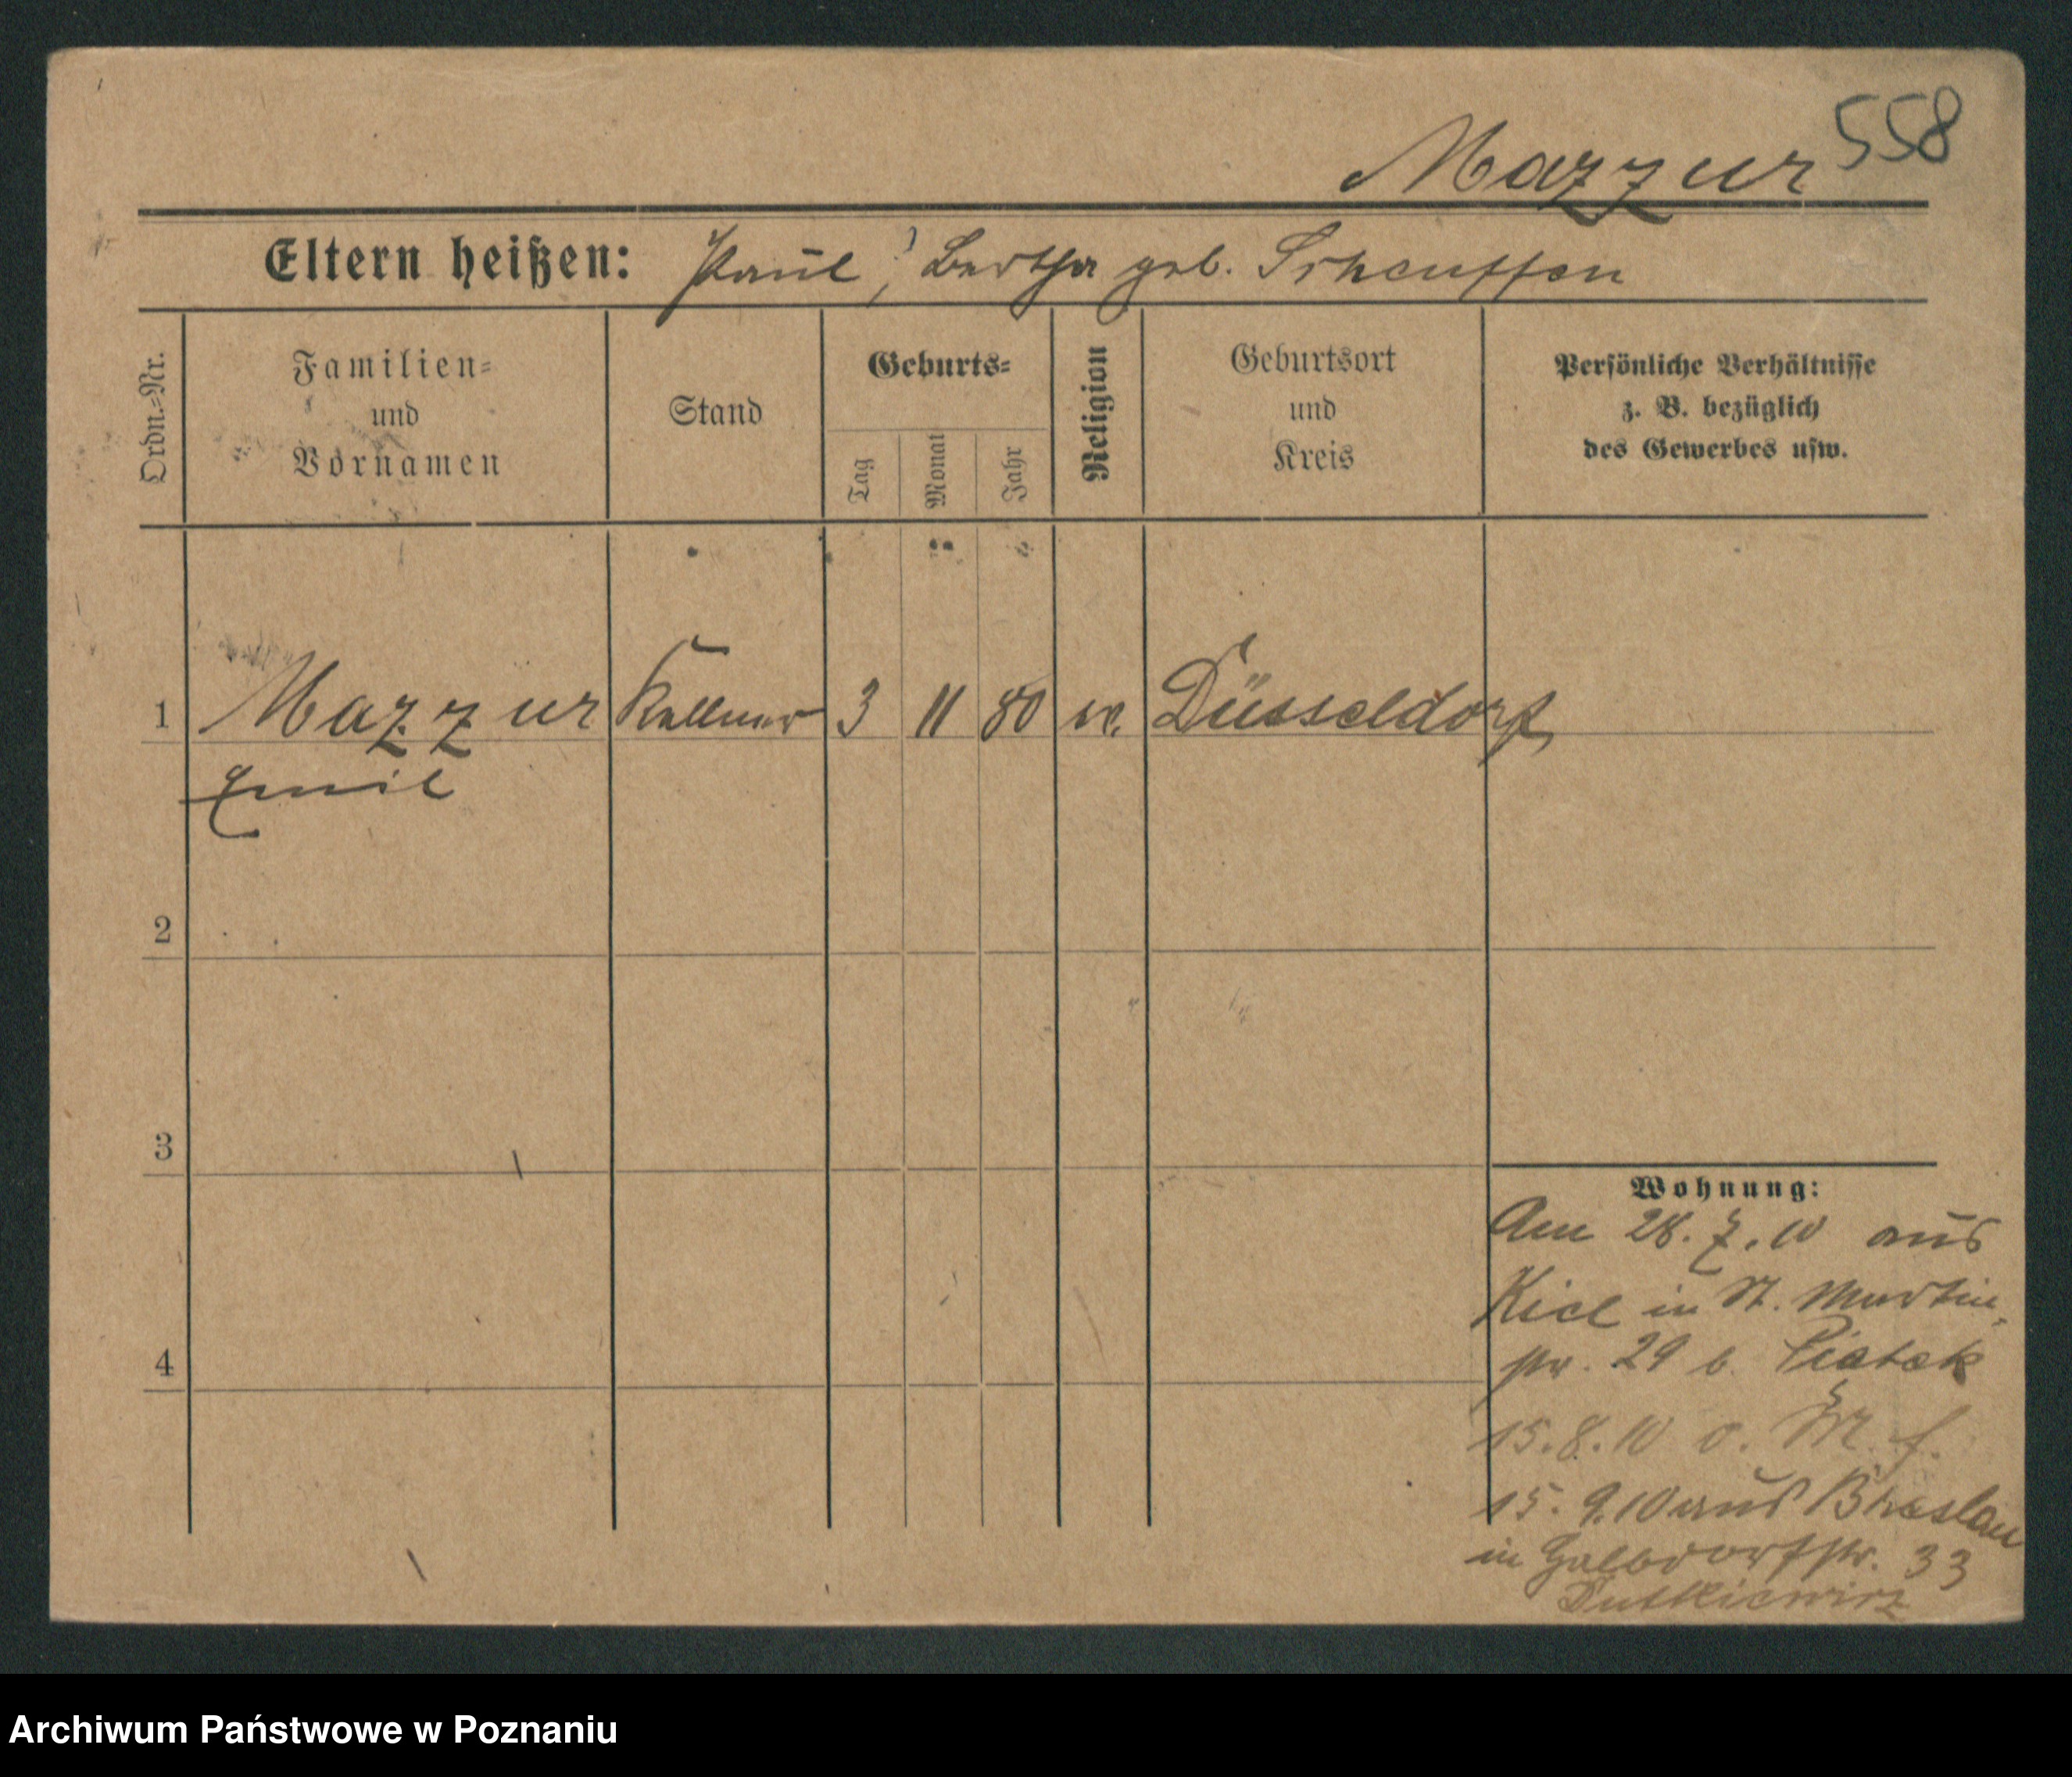 558
Mazzur
Eltern heißen: Paul, Bertha geb. Scheuffen
Ordn.-Nr.
Familien-
und
Vornamen
Stand
Geburts-
Tag
Monat
Jahr
Religion
Geburtsort
und
Kreis
Persönliche Verhältnisse
z. B. bezüglich
des Gewerbes usw.
1 Mazzur Kellner 3 11 80 Düsseldorf
Emil
2
3
4
Wohnung:
Am 28. 7. 10 aus
Kiel in St. Martin-
str. 29 b. Piatek
15.8.10 o. M. f.
15. 9. 10 aus Breslau
in Halbdorfstr. 33
Dutkiewicz
Archiwum Państwowe w Poznaniu